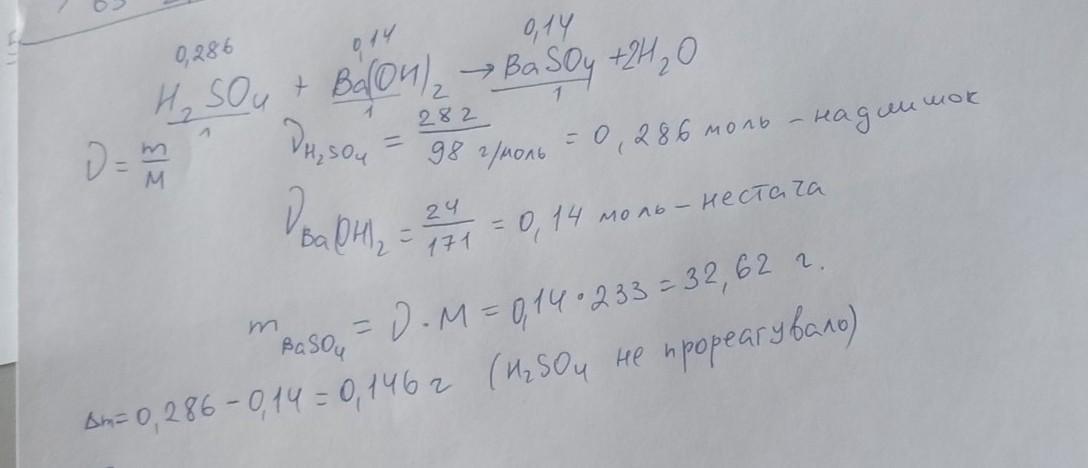 0,286 0,14 0,14
H₂SO₄ + Ba(OH)₂ → BaSO₄ + 2H₂O
1 1 1
ν = m/M ν H₂SO₄ = 282/98 г/моль = 0,286 моль – надлишок
ν Ba(OH)₂ = 24/171 = 0,14 моль – нестача
m BaSO₄ = ν · M = 0,14 · 233 = 32,62 г.
Δm = 0,286 – 0,14 = 0,146 г (H₂SO₄ не прореагувало)